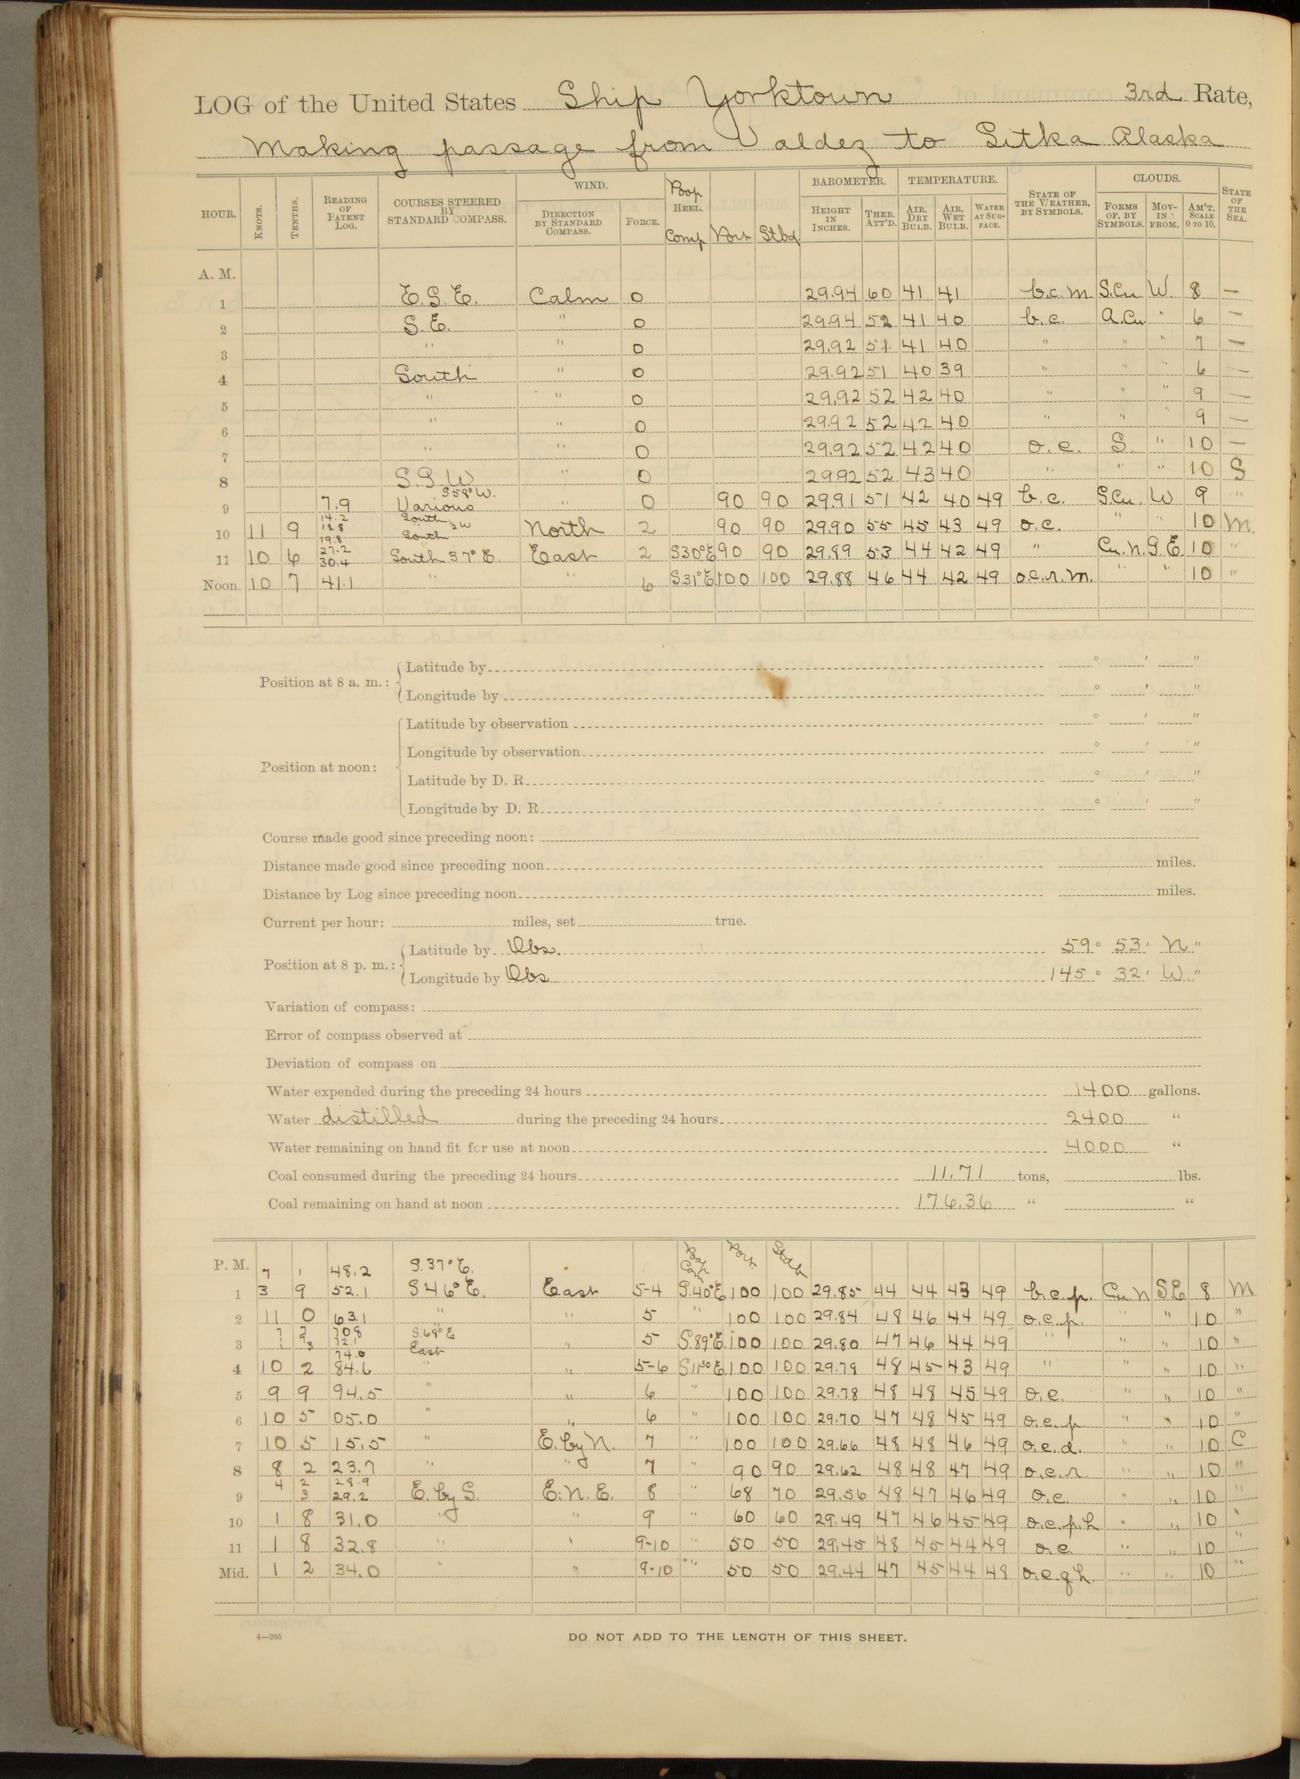 LOG of the United States Ship Yorktown 3rd Rate,
Making passage from Valdez to Sitka Alaska
HOUR. KNOTS. TENTHS. READING OF PATENT LOG. COURSES STEERED BY STANDARD COMPASS. WIND. DIRECTION BY STANDARD COMPASS. FORCE. Poop HEEL. Comp Port Stbd BAROMETER. HEIGHT IN INCHES. THER. ATT'D. TEMPERATURE. AIR, DRY BULB. AIR, WET BULB. WATER AT SURFACE. STATE OF THE WEATHER, BY SYMBOLS. CLOUDS. FORMS OF, BY SYMBOLS. MOVING FROM. AM'T, SCALE 0 TO 10. STATE OF THE SEA.
A. M.
1 E.S.E. Calm 0 29.94 60 41 41 b.c.m S.Cu. W. 8 —
2 S.E. " 0 29.94 52 41 40 b.c. A.Cu " 6 —
3 " " 0 29.92 51 41 40 " " " 7 —
4 South " 0 29.92 51 40 39 " " " 6 —
5 " " 0 29.92 52 42 40 " " " 9 —
6 " " 0 29.92 52 42 40 " " " 9 —
7 " " 0 29.92 52 42 40 o.c. S. " 10 —
8 S.S.W " 0 29.92 52 43 40 " " " 10 S
S58°W.
9 7.9 Various " 0 90 90 29.91 51 42 40 49 b.c. S.Cu. W 9 "
14.2 South
10 11 9 18.8 ½W North 2 90 90 29.90 55 45 43 49 o.c. " " 10 M.
19.8 South
27.2
11 10 6 30.4 South 37° E. East 2 S30°E 90 90 29.89 53 44 42 49 " Cu.N. S.E. 10 "
Noon. 10 7 41.1 " " 6 S31°E 100 100 29.88 46 44 42 49 o.c.r.m. " " 10 "
Position at 8 a. m.: Latitude by ° ' "
Longitude by ° ' "
Position at noon: Latitude by observation ° ' "
Longitude by observation ° ' "
Latitude by D. R. ° ' "
Longitude by D. R. ° ' "
Course made good since preceding noon:
Distance made good since preceding noon miles.
Distance by Log since preceding noon miles.
Current per hour: miles, set true.
Position at 8 p. m.: Latitude by Obs. 59° 53' N"
Longitude by Obs 145° 32' W"
Variation of compass:
Error of compass observed at
Deviation of compass on
Water expended during the preceding 24 hours 1400 gallons.
Water distilled during the preceding 24 hours 2400 "
Water remaining on hand fit for use at noon 4000 "
Coal consumed during the preceding 24 hours 11.71 tons, lbs.
Coal remaining on hand at noon 176.36 " "
P. M. 7 1 48.2 S.37°E. Port Stbd
1 3 9 52.1 S46°E. East 5-4 S.40°E 100 100 29.85 44 44 43 49 b.c.p. Cu N S.E 8 M
2 11 0 63.1 " " 5 " 100 100 29.84 48 46 44 49 o.c.p. " " 10 "
3 70.8 S.68°E " 5 S.89°E. 100 100 29.80 47 46 44 49 " " " 10 "
East
74.0
4 10 2 84.6 " " 5-6 100 100 29.79 48 45 43 49 " " " 10 "
5 9 9 94.5 " " 6 " 100 100 29.78 48 48 45 49 o.c. " " 10 "
6 10 5 05.0 " " 6 " 100 100 29.70 47 48 45 49 o.c.p " " 10 "
7 10 5 15.5 " E. by N. 7 " 100 100 29.66 48 48 46 49 o.c.d. " " 10 C
8 8 2 23.7 " " 7 " 90 90 29.62 48 48 47 49 o.c.r. " " 10 "
4 2 28.9
9 3 29.2 E. by S. E.N.E. 8 " 68 70 29.56 48 47 46 49 o.c. " " 10 "
10 1 8 31.0 " " 9 " 60 60 29.49 47 46 45 49 o.c.p.h " " 10 "
11 1 8 32.8 " " 9-10 " 50 50 29.45 48 45 44 49 o.c. " " 10 "
Mid. 1 2 34.0 " " 9-10 " 50 50 29.44 47 45 44 48 o.c.q.h. " " 10 "
4—265
DO NOT ADD TO THE LENGTH OF THIS SHEET.